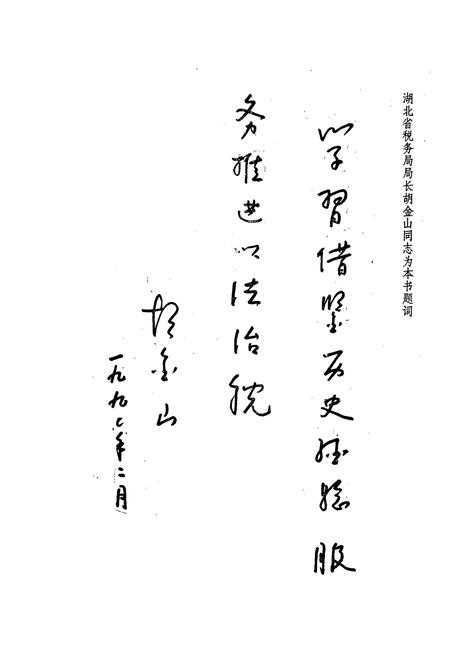 湖北省税务局局长胡金山同志为本书题词
学习借鉴历史经验服
务推进以法治税
胡金山
一九九七年二月